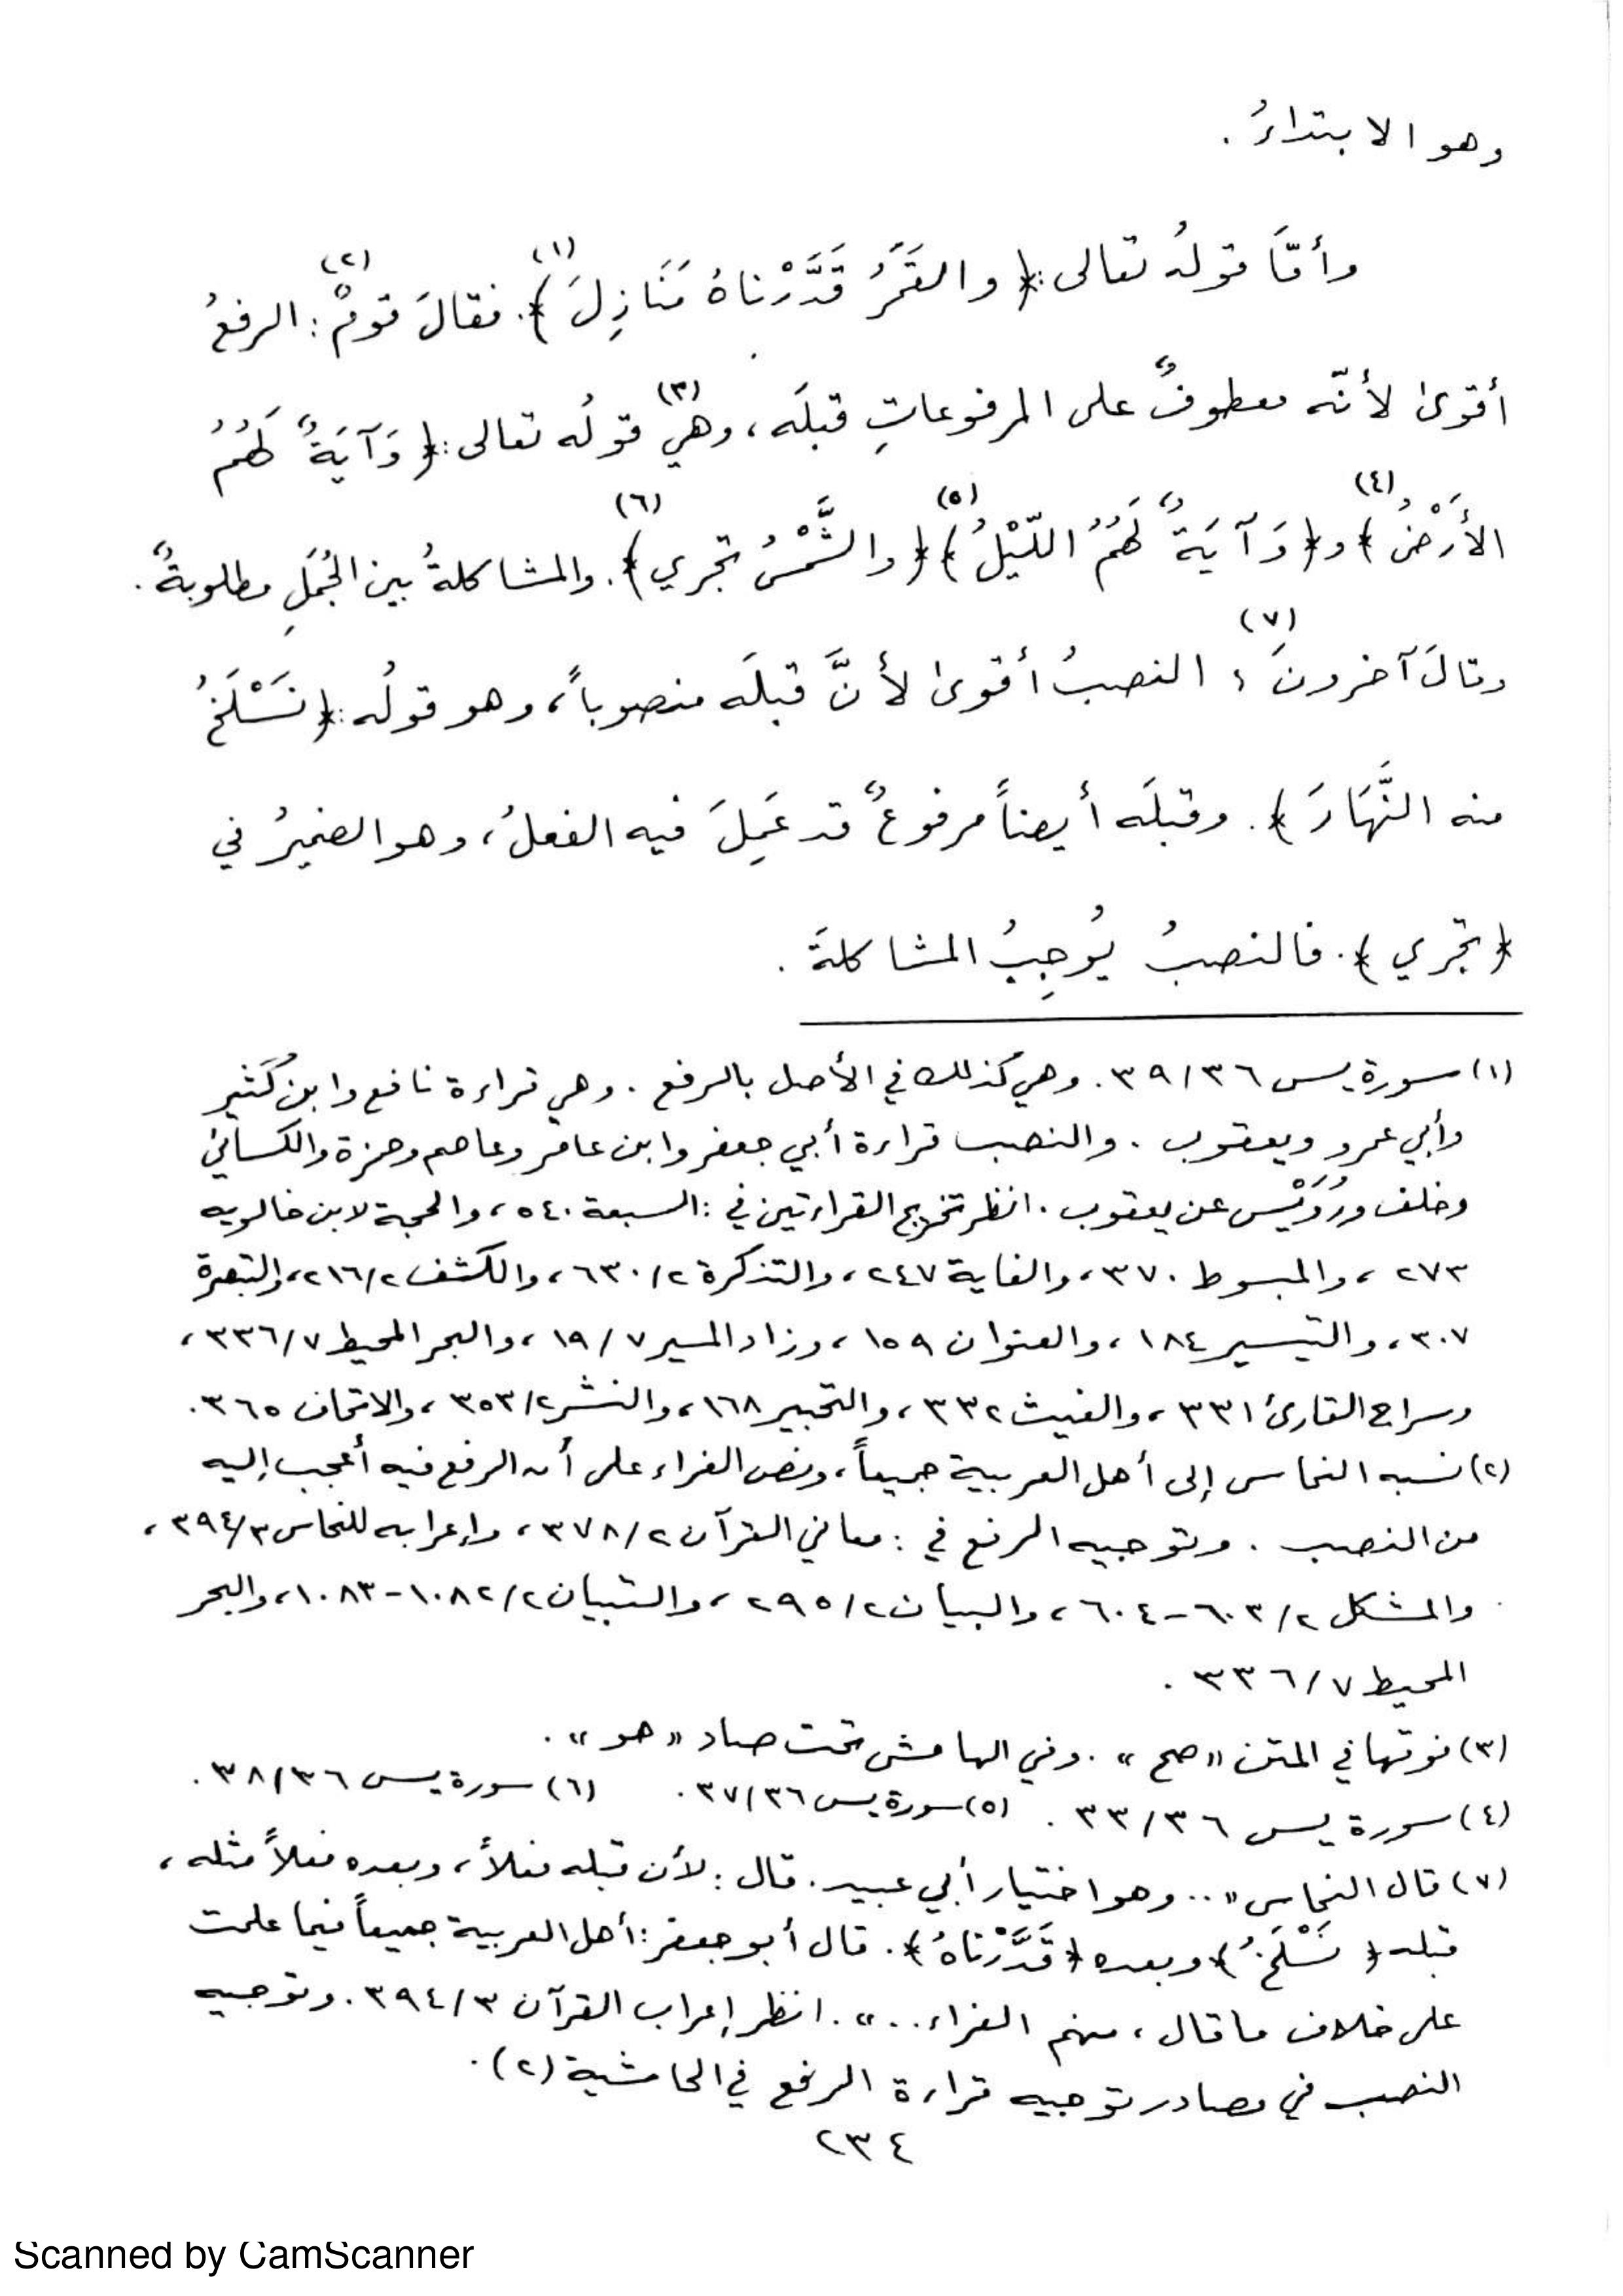 وهو الابتداءُ .
وأمّا قولهُ تعالى :﴿ والقَمَرُ قَدَّرْناهُ مَنَازِلَ ﴾(١). فقالَ قومٌ(٢): الرفعُ
أقوىٰ لأنّه معطوفٌ على المرفوعاتِ قبلَه ، وهي(٣) قولُه تعالى :﴿ وَآيَةٌ لَهُمُ
الأَرْضُ ﴾(٤) و﴿ وَآيَةٌ لَهُمُ اللّيْلُ ﴾(٥) ﴿ والشَّمْسُ تجري ﴾(٦). والمشاكلةُ بين الجُمَلِ مطلوبةٌ .
وقالَ آخرونَ(٧) : النصبُ أقوىٰ لأنَّ قبلَه منصوباً ، وهو قولُه :﴿ نَسْلَخُ
منه النَّهَارَ ﴾ . وقبلَه أيضاً مرفوعٌ قد عَمِلَ فيه الفعلُ ، وهو الضميرُ في
﴿ تجري ﴾ . فالنصبُ يُوجِبُ المشاكلةَ .
(١) سورة يس ٣٩/٣٦ . وهي كذلك في الأصل بالرفع . وهي قراءة نافع وابن كَثير
وأبي عمرو ويعقوب . والنصب قراءة أبي جعفر وابن عامر وعاصم وحمزة والكسائي
وخلف ورُوَيْس عن يعقوب . انظر تخريج القراءتين في : السبعة ٥٤٠ ، والحجة لابن خالويه
٢٧٣ ، والمبسوط ٣٧٠ ، والغاية ٢٤٧ ، والتذكرة ٦٣٠/٢ ، والكشف ٢١٦/٢ ، والتبصرة
٣٠٧ ، والتيسير ١٨٤ ، والعنوان ١٥٩ ، وزاد المسير ١٩/٧ ، والبحر المحيط ٣٣٦/٧ ،
وسراج القارئ ٣٣١ ، والغيث ٣٣٢ ، والتحبير ١٦٨ ، والنشر ٣٥٣/٢ ، والاتحاف ٣٦٥ .
(٢) نسبه النحاس إلى أهل العربية جميعاً ، ونص الفراء على أن الرفع فيه أعجب إليه
من النصب . وتوجيه الرفع في : معاني القرآن ٣٧٨/٢ ، وإعرابه للنحاس ٣٩٤/٣ ،
والمشكل ٦٠٣/٢-٦٠٤ ، والبيان ٢٩٥/٢ ، والتبيان ١٠٨٢/٢-١٠٨٣ ، والبحر
المحيط ٣٣٦/٧ .
(٣) فوتها في المتن « صح » . وفي الهامش تحت صاد « هو » .
(٤) سورة يس ٣٣/٣٦ . (٥) سورة يس ٣٧/٣٦ . (٦) سورة يس ٣٨/٣٦ .
(٧) قال النحاس « .. وهو اختيار أبي عبيد . قال : لأن قبله فعلاً ، وبعده فعلاً مثله ،
قبله ﴿ نَسْلَخُ ﴾ وبعده ﴿ قَدَّرْناهُ ﴾ . قال أبو جعفر : أهل العربية جميعاً فيما علمت
على خلاف ما قال ، منهم الفراء .. » . انظر إعراب القرآن ٣٩٤/٣ . وتوجيه
النصب في مصادر توجيه قراءة الرفع في الحاشية (٢) .
٢٣٤
Scanned by CamScanner